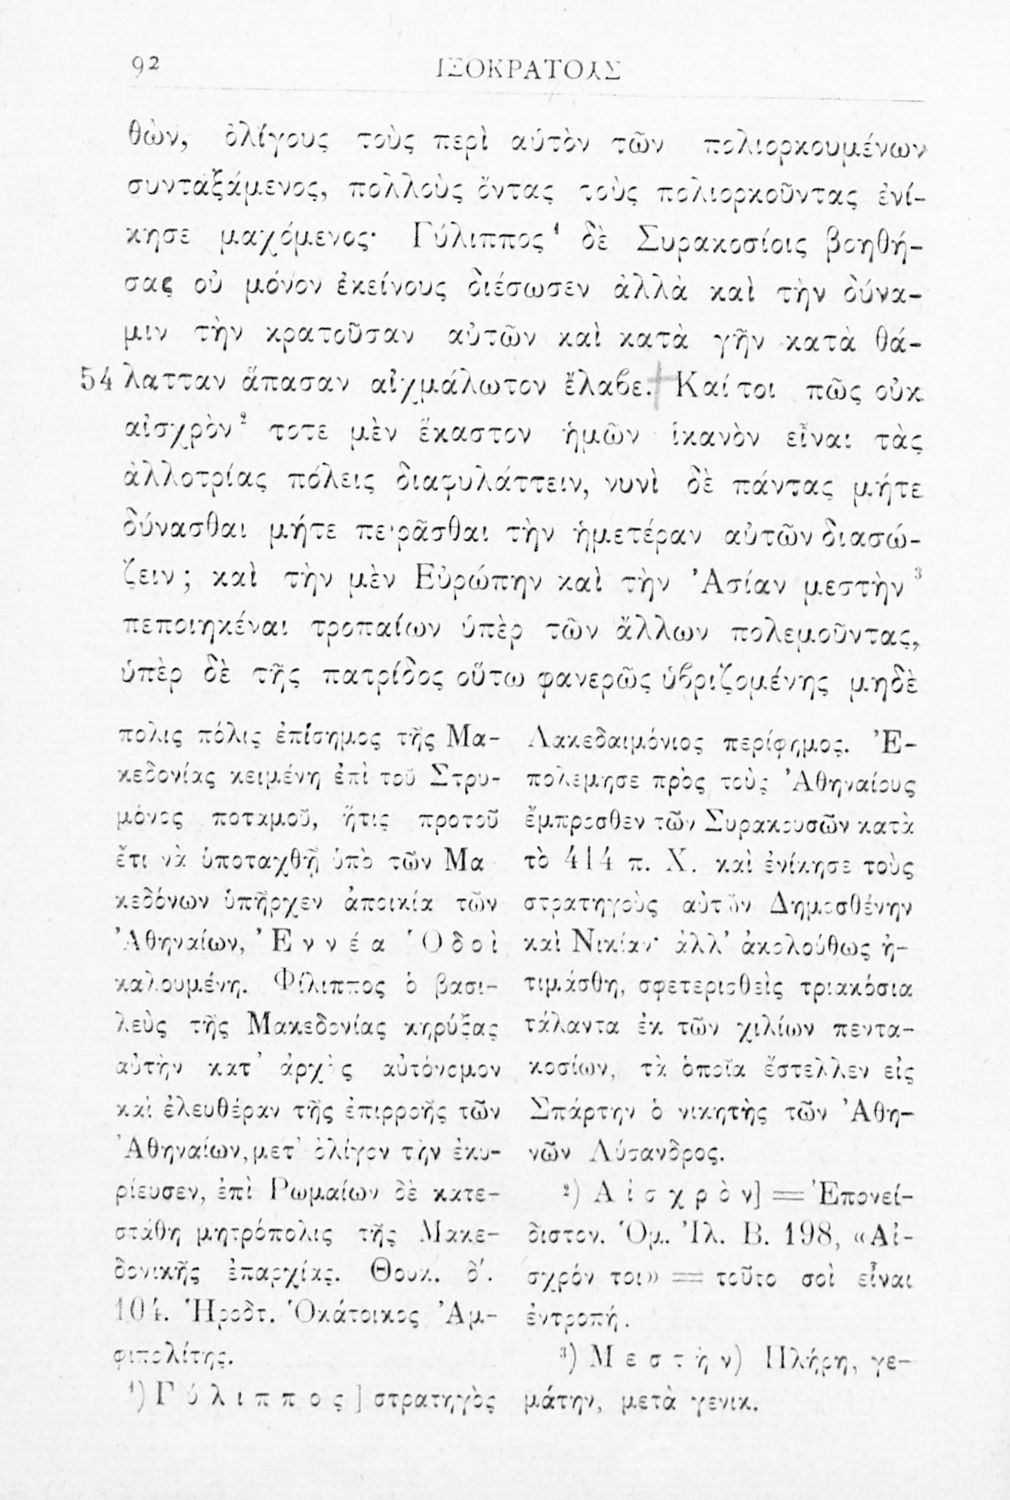 92
ΙΣΟΚΡΑΤΟΥΣ
θὼν, ὀλίγους τοὺς περὶ αὑτὸν τῶν πολιορκουμένων
συνταξάμενος, πολλοὺς ὄντας τοὺς πολιορκοῦντας ἐνί-
κησε μαχόμενος· Γύλιππος ¹ δὲ Συρακοσίοις βοηθή-
σας οὐ μόνον ἐκείνους διέσωσεν ἀλλὰ καὶ τὴν δύνα-
μιν τὴν κρατοῦσαν αὐτῶν καὶ κατὰ γῆν κατὰ θά-
54 λατταν ἅπασαν αἰχμάλωτον ἔλαβε. Καί τοι πῶς οὐκ
αἰσχρὸν ² τοτε μὲν ἕκαστον ἡμῶν ἱκανὸν εἶναι τὰς
ἀλλοτρίας πόλεις διαφυλάττειν, νυνὶ δὲ πάντας μήτε
δύνασθαι μήτε πειρᾶσθαι τὴν ἡμετέραν αὐτῶν διασώ-
ζειν ; καὶ τὴν μὲν Εὐρώπην καὶ τὴν Ἀσίαν μεστὴν ³
πεποιηκέναι τροπαίων ὑπὲρ τῶν ἄλλων πολεμοῦντας,
ὑπὲρ δὲ τῆς πατρίδος οὕτω φανερῶς ὑβριζομένης μηδὲ
πολις πόλις ἐπίσημος τῆς Μα-
κεδονίας κειμένη ἐπὶ τοῦ Στρυ-
μόνος ποταμοῦ, ἥτις προτοῦ
ἔτι νὰ ὑποταχθῇ ὑπὸ τῶν Μα
κεδόνων ὑπῆρχεν ἀποικία τῶν
Ἀθηναίων, Ἐ ν ν έ α Ὁ δ ο ὶ
καλουμένη. Φίλιππος ὁ βασι-
λεὺς τῆς Μακεδονίας κηρύξας
αὐτὴν κατ' ἀρχὰς αὐτόνομον
καὶ ἐλευθέραν τῆς ἐπιρροῆς τῶν
Ἀθηναίων, μετ' ὀλίγον τὴν ἐκυ-
ρίευσεν, ἐπὶ Ρωμαίων δὲ κατε-
στάθη μητρόπολις τῆς Μακε-
δονικῆς ἐπαρχίας. Θουκ. δ'.
104. Ἡροδτ. Ὁ κάτοικος Ἀμ-
φιπολίτης.
¹) Γ ύ λ ι π π ο ς ] στρατηγὸς
Λακεδαιμόνιος περίφημος. Ἐ-
πολέμησε πρὸς τοὺς Ἀθηναίους
ἔμπροσθεν τῶν Συρακουσῶν κατὰ
τὸ 414 π. Χ. καὶ ἐνίκησε τοὺς
στρατηγοὺς αὐτῶν Δημοσθένην
καὶ Νικίαν· ἀλλ' ἀκολούθως ἠ-
τιμάσθη, σφετερισθεὶς τριακόσια
τάλαντα ἐκ τῶν χιλίων πεντα-
κοσίων, τὰ ὁποῖα ἔστελλεν εἰς
Σπάρτην ὁ νικητὴς τῶν Ἀθη-
νῶν Λύσανδρος.
²) Α ἰ σ χ ρ ὸ ν] = Ἐπονεί-
διστον. Ὁμ. Ἰλ. Β. 198, «Αἰ-
σχρόν τοι» = τοῦτο σοὶ εἶναι
ἐντροπή.
³) Μ ε σ τ ὴ ν) Πλήρη, γε-
μάτην, μετὰ γενικ.